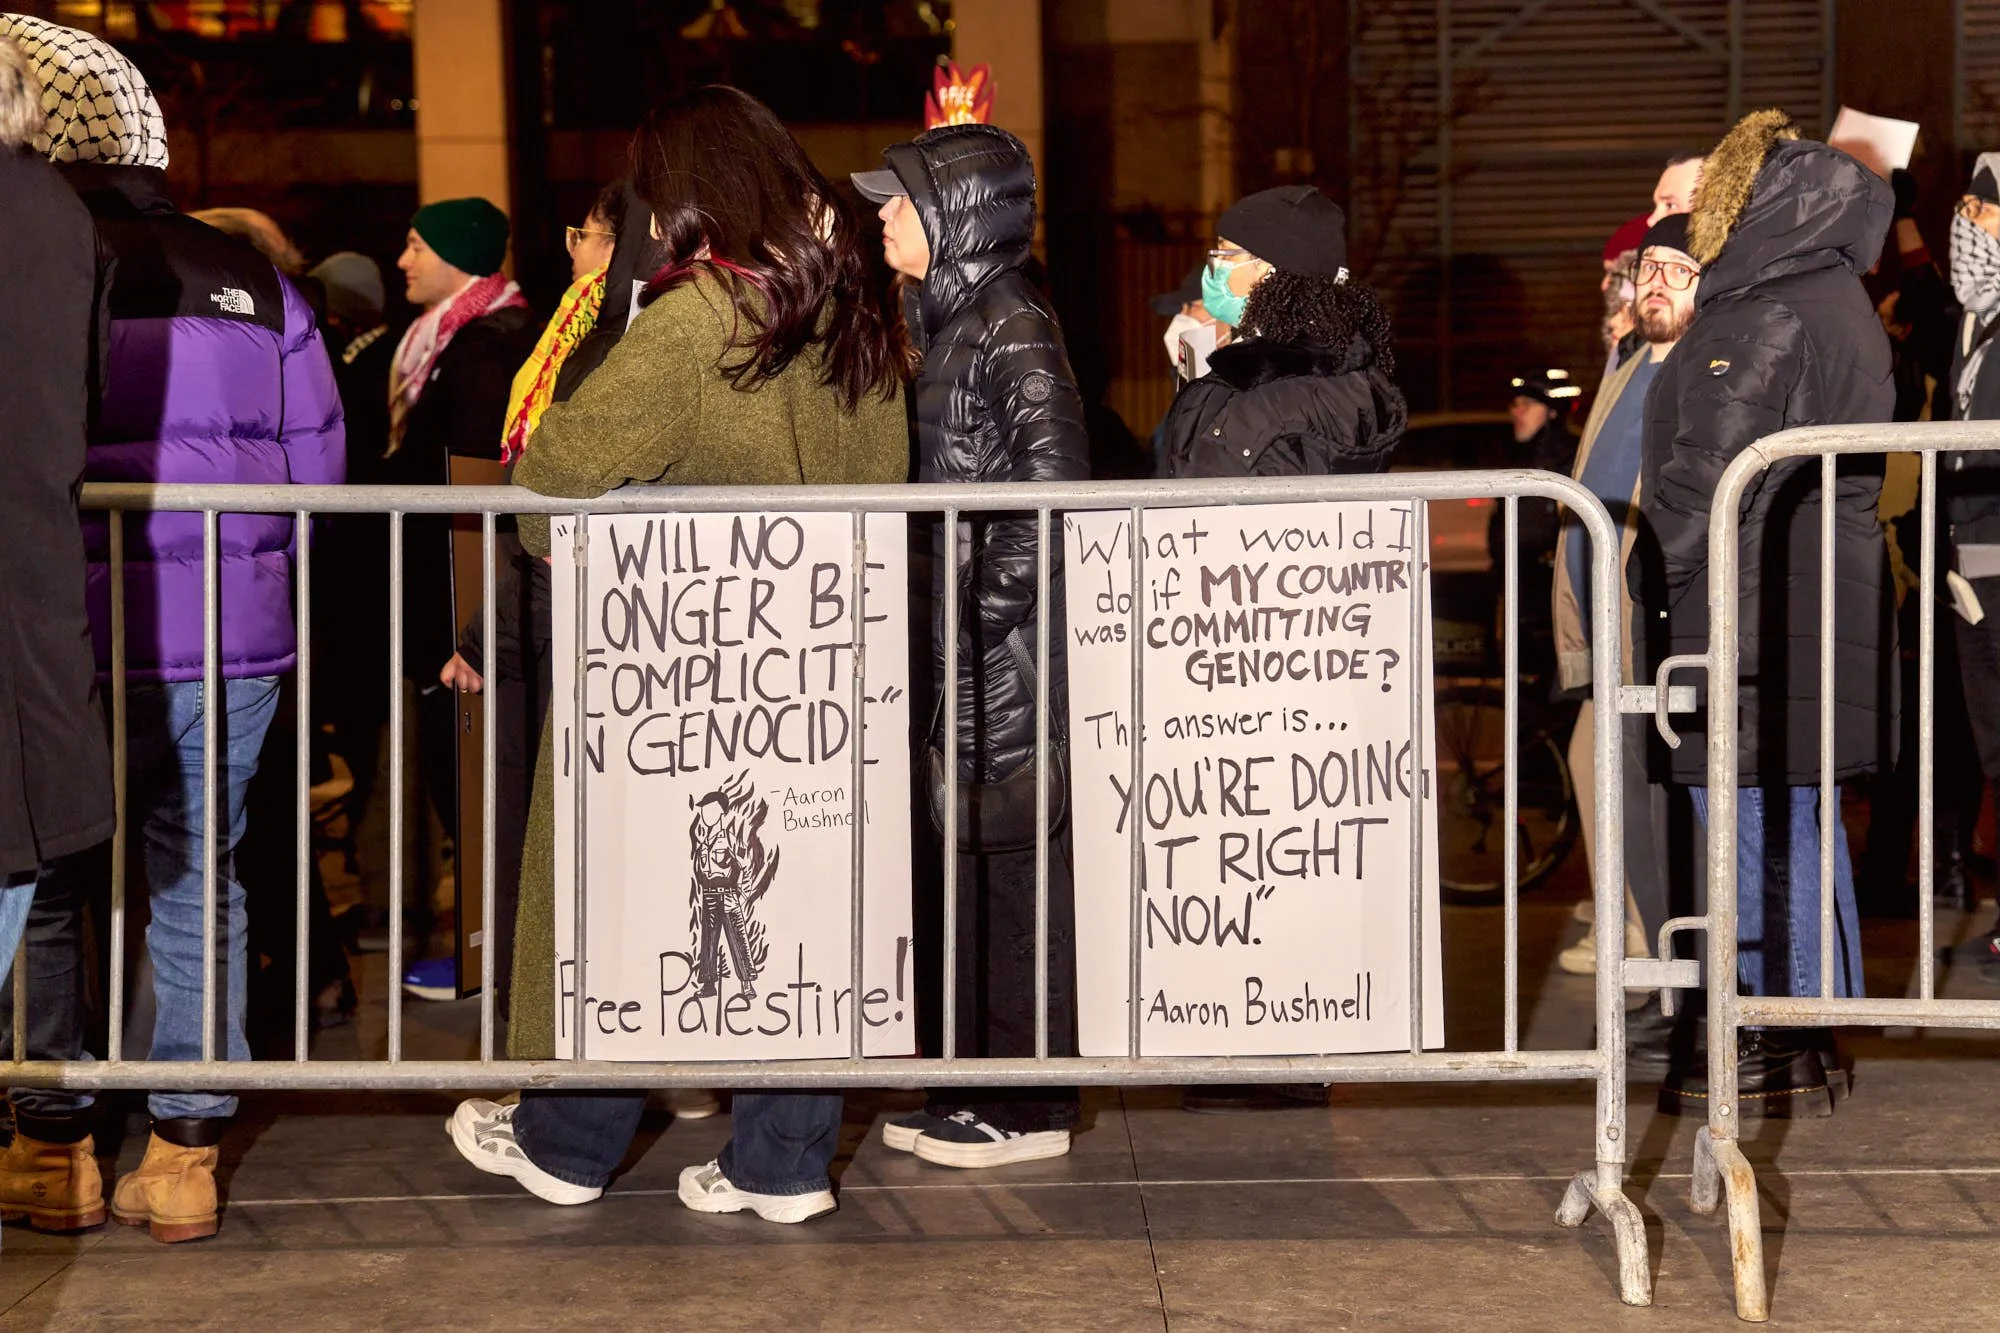 FREE
THE
NORTH
FACE
"I WIll NO
LONGER BE
COMPLICIT
IN GENOCIDE"
-Aaron
Bushnell
"Free Palestine!"
"What would I
do if MY COUNTRY
was COMMITTING
GENOCIDE?
The answer is...
YOU'RE DOING
IT RIGHT
NOW."
-Aaron Bushnell